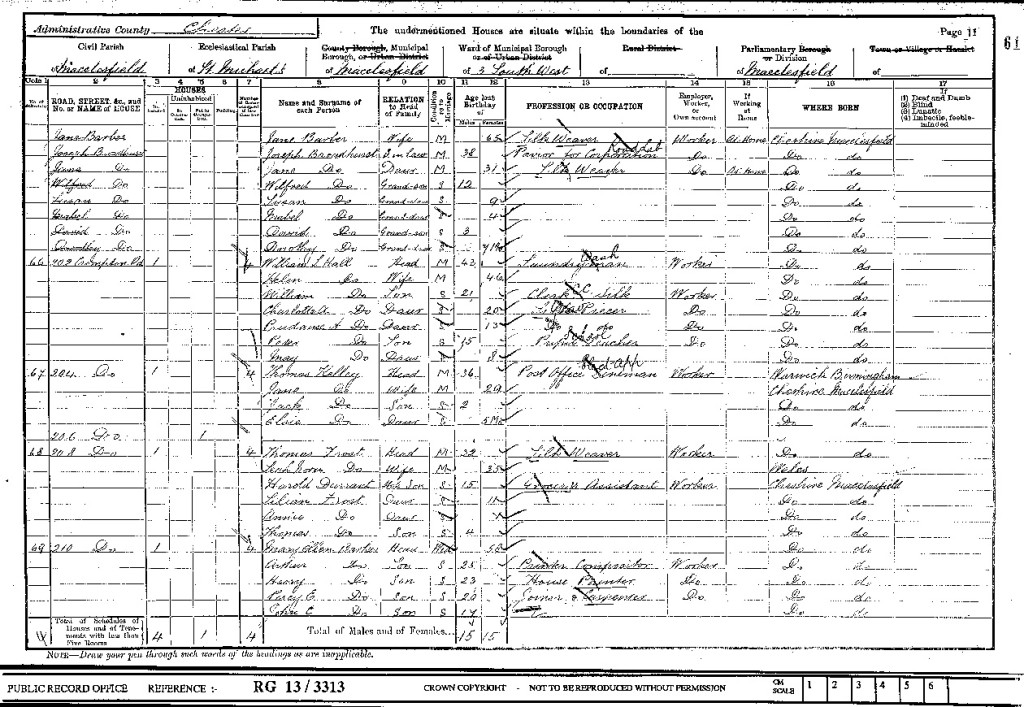 Administrative County Chester The undermentioned Houses are situate within the boundaries of the Page 11
61
Civil Parish Ecclesiastical Parish County Borough, Municipal Borough, or Urban District Ward of Municipal Borough or of Urban District Rural District Parliamentary Borough or Division Town or Village or Hamlet
of Macclesfield of St. Michael's of Macclesfield of 3 South West of of Macclesfield of
1 2 3 4 5 6 7 8 9 10 11 12 13 14 15 16 17
ROAD, STREET, &c., and No. or NAME of HOUSE HOUSES Inhabited Uninhabited Building Name and Surname of each Person RELATION to Head of Family Condition as to Marriage Age last Birthday of Males Females PROFESSION OR OCCUPATION Employer, Worker, or Own account If Working at Home WHERE BORN If (1) Deaf and Dumb (2) Blind (3) Lunatic (4) Imbecile, feeble-minded
Jane Barber Jane Barber Wife M 65 Silk Weaver Worker At Home Cheshire Macclesfield
Joseph Broadhurst Joseph Broadhurst S in Law M 38 Pavior for Corporation Road Lab Do Do do
Jane Do Jane Do Daur M 31 Silk Weaver Do At Home Do do
Wilfred Do Wilfred Do Grand-son S 12 Do do
Susan Do Susan Do Grand-daur S 9 Do do
Mabel Do Mabel Do Grand-daur S 4 Do do
David Do David Do Grand-son S 3 Do do
Dorothy Do Dorothy Do Grand-daur S Do do
66 202 Crompton Rd 1 4 William S Hall Head M 42 Laundryman Wash Worker Do do
Helen Do Wife M 46 Do do
William Do Son S 21 Clerk Silk CC Worker Do do
Charlotte A Do Daur S 20 Silk Piecer Do Do do
Prudance A Do Daur S 13 Do do Do Do do
Peter Do Son S 15 Pupil Teacher School Do Do do
May Do Daur S 8 Do do
67 204 Do 1 4 Thomas Kelley Head M 36 Post Office Lineman Worker Warwick Birmingham
Anne Do Wife M 29 Cheshire Macclesfield
Jack Do Son S 2 Do do
Elsie Do Daur S 5 Ms Do do
206 Do 1
68 208 Do 1 4 Thomas Frost Head M 32 Silk Weaver Worker Do do
Do Wife M 35 Wales
Harold Durrant Son S 15 Grocer's Assistant Worker Cheshire Macclesfield
Lilian Frost Daur S 11 Do do
Annie Do Daur S 7 Do do
Thomas Do Son S 4 Do do
69 210 Do 1 4 Mary Ellen Barker Head Wid 50 Do do
Arthur Do Son S 25 Printer Compositor Worker Do do
Henry Do Son S 23 House Painter Do Do do
Percy E. Do Son S 20 Joiner & Carpenter Do Do do
John C Do Son S 17 Do do
4 Total of Schedules of Houses and of Tenements with less than Five Rooms 4 1 4 Total of Males and of Females... 15 15
NOTE—Draw your pen through such words of the headings as are inapplicable.
PUBLIC RECORD OFFICE REFERENCE :- RG 13/3313 CROWN COPYRIGHT - NOT TO BE REPRODUCED WITHOUT PERMISSION CM SCALE 1 2 3 4 5 6